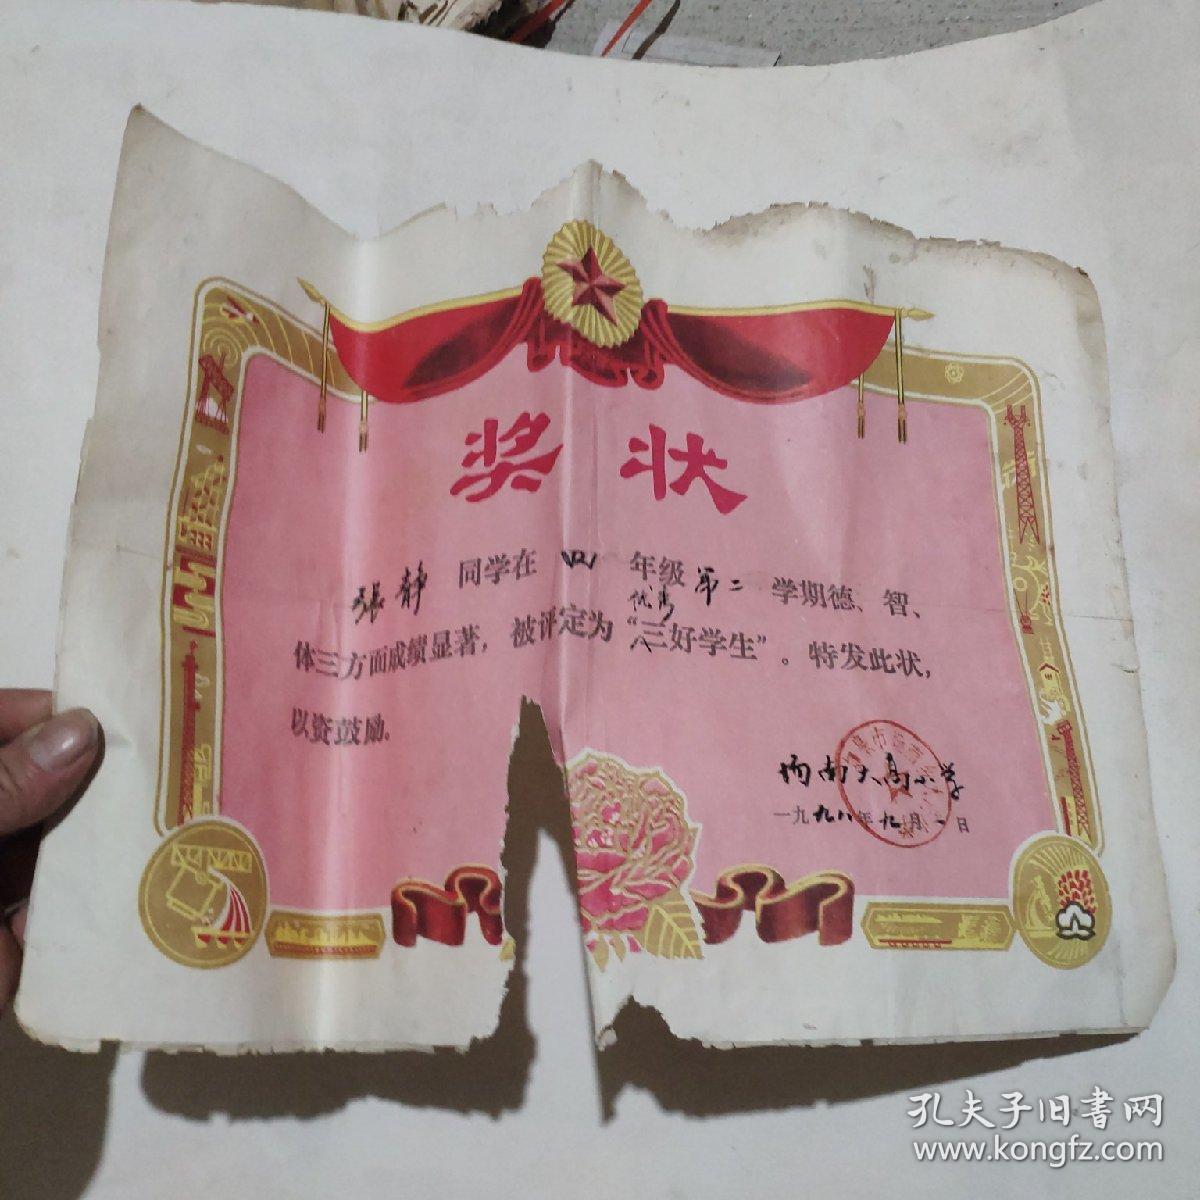 奖状
张静 同学在 四 年级 第二 学期德、智、
优秀
体三方面成绩显著，被评定为“三好学生”。特发此状，
以资鼓励.
南大高小学
一九九八年九月一日
孔夫子旧书网
www.kongfz.com